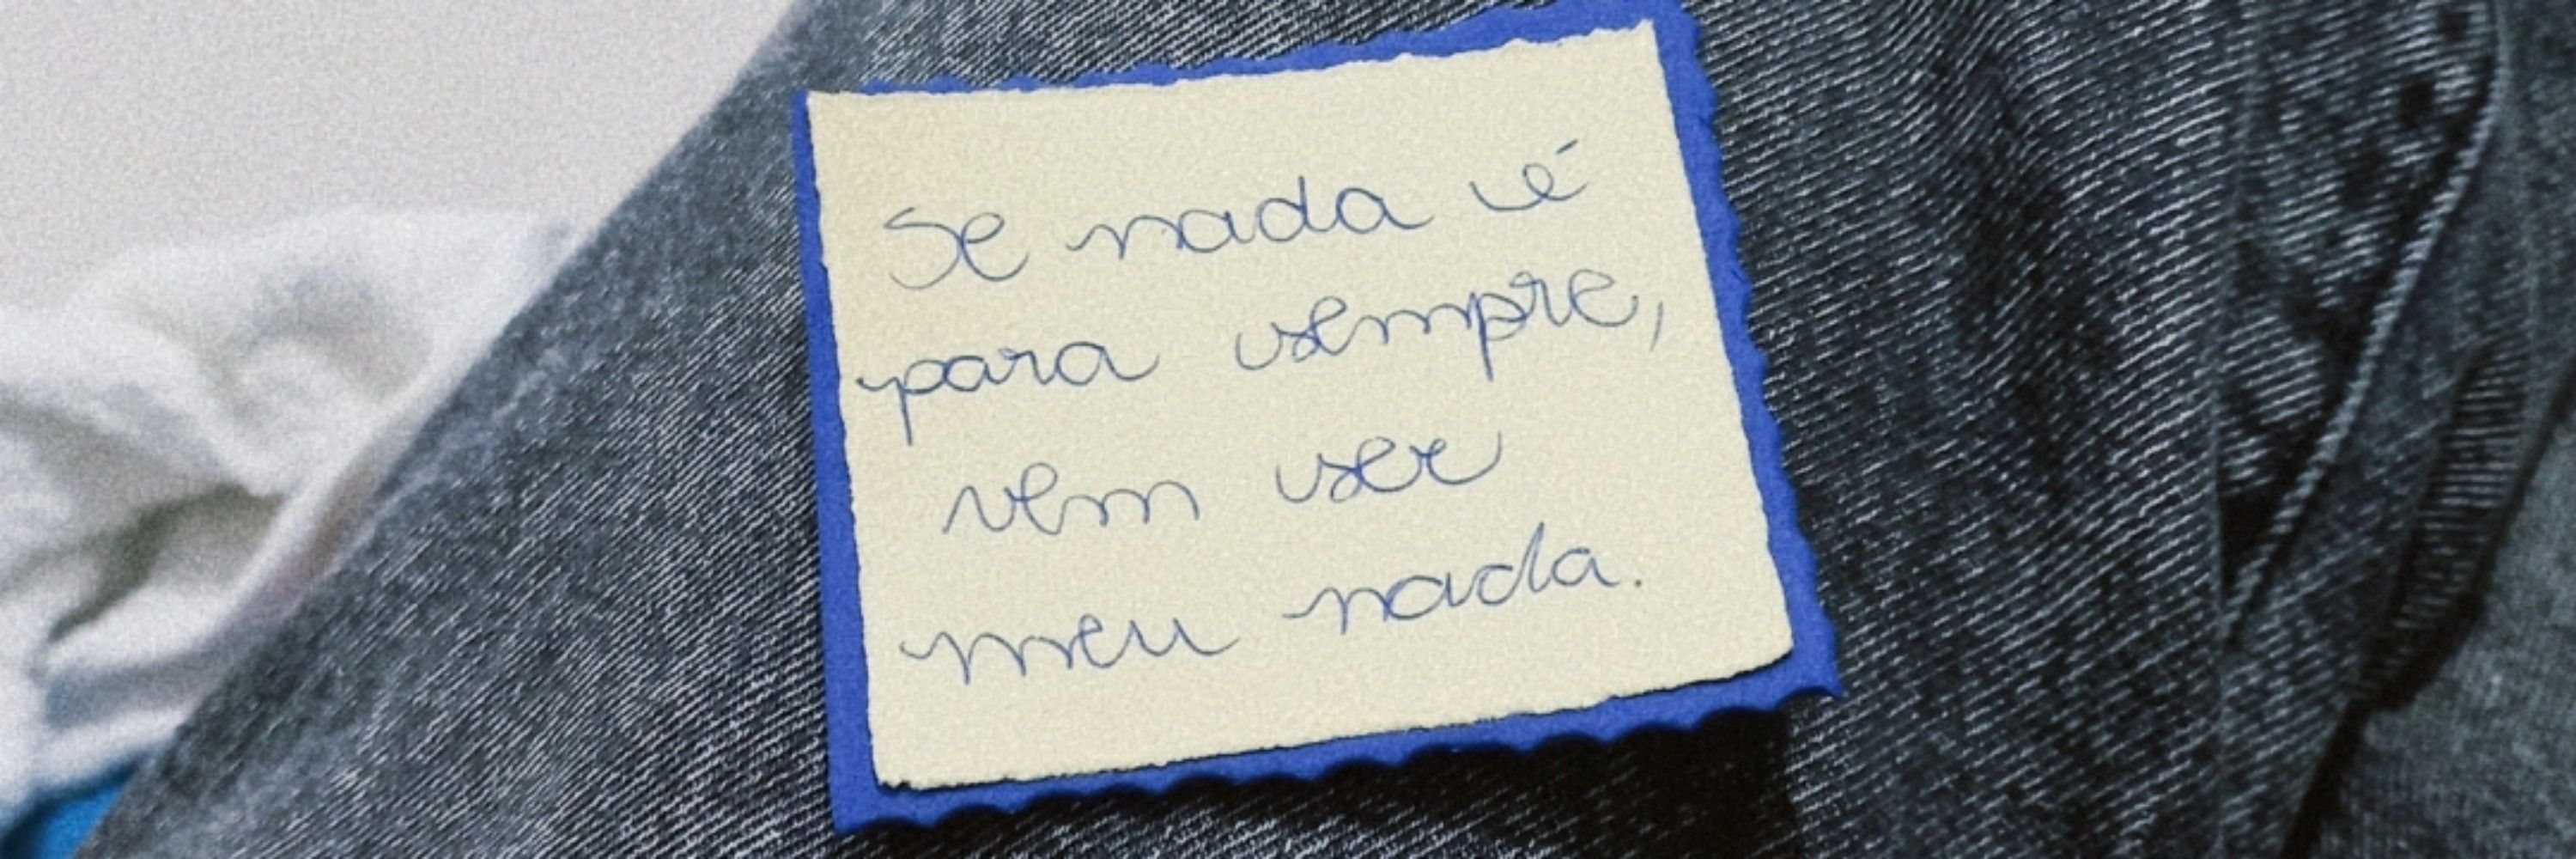 Se nada é
para sempre,
vem ser
meu nada.